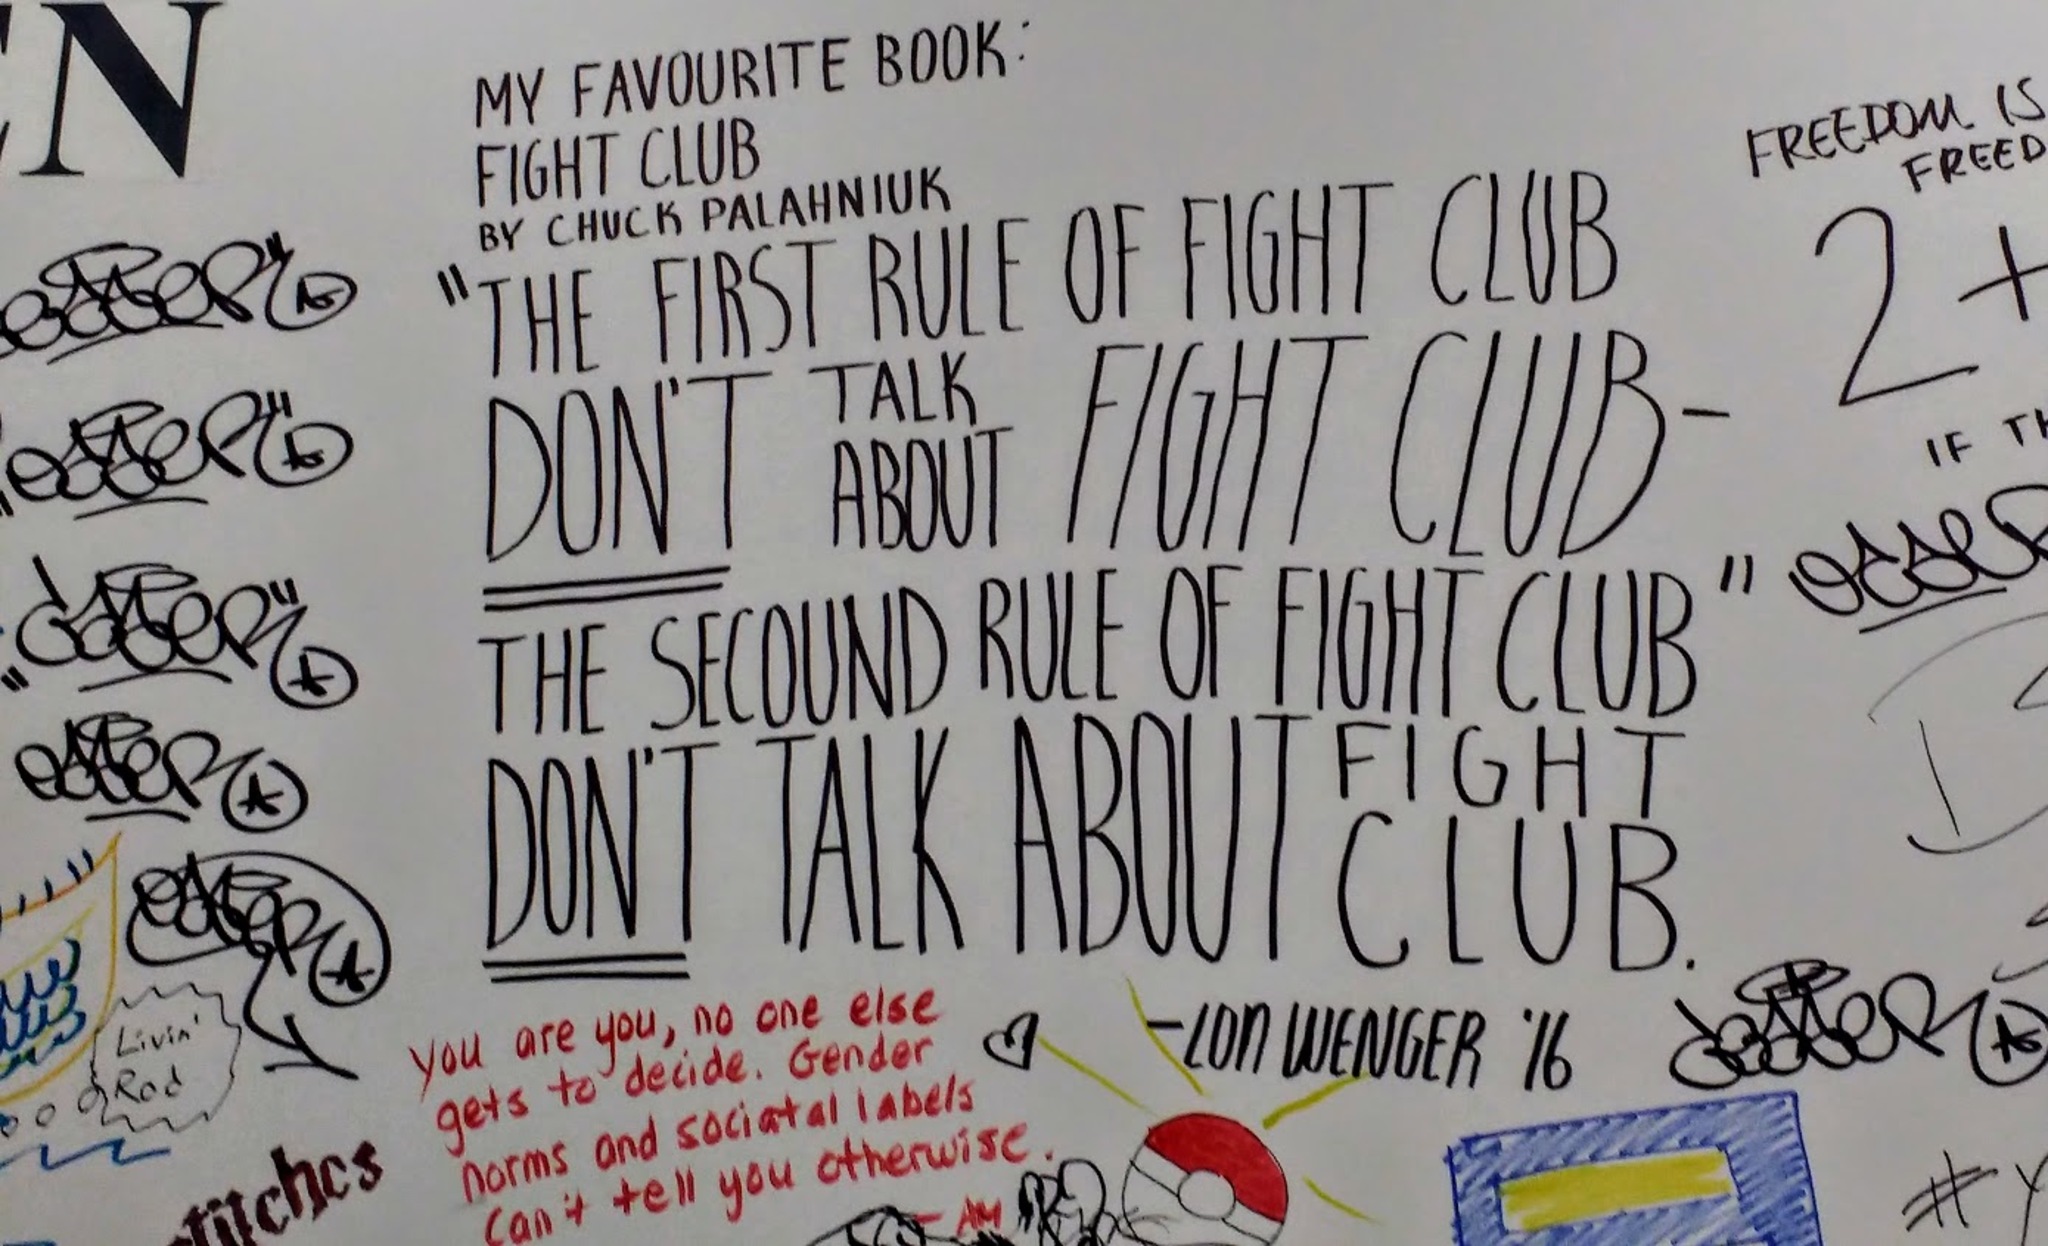 EN
MY FAVOURITE BOOK:
FIGHT CLUB
BY CHUCK PALAHNIUK
"THE FIRST RULE OF FIGHT CLUB
DON'T TALK ABOUT FIGHT CLUB-
THE SECOUND RULE OF FIGHT CLUB"
DON'T TALK ABOUT FIGHT CLUB.
-LON WENGER '16
FREEDOM IS
FREED
2+
IF TH
You are you, no one else
gets to decide. Gender
norms and sociatal labels
can't tell you otherwise.
- AM
Livin'
Rad
stitches
#Y